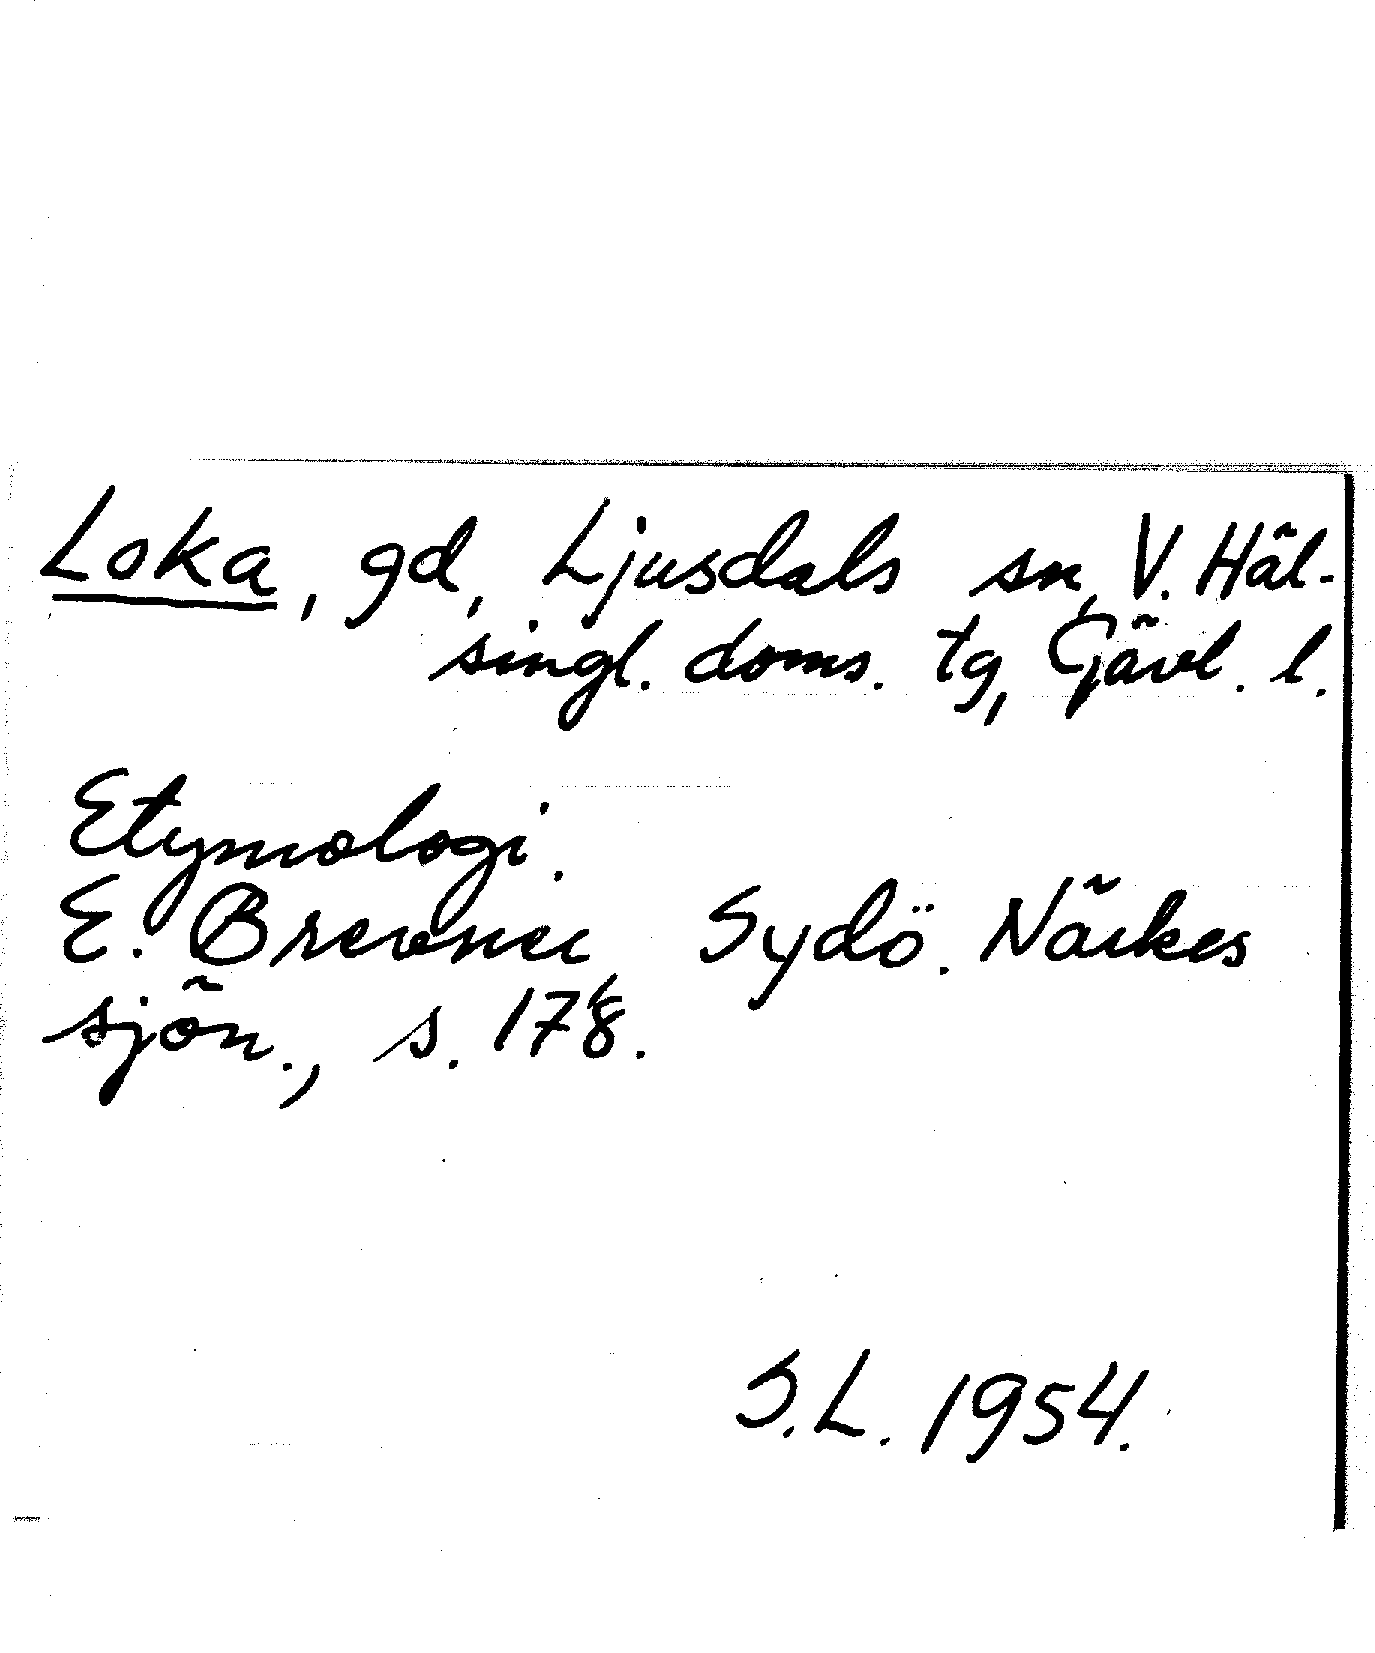 Loka, gd, Ljusdals sn, V. Häl-
singl. doms. tg, Gävl. l.
Etymologi.
E. Brevner, Sydö. Närkes
sjön., s. 178.
S.L. 1954.